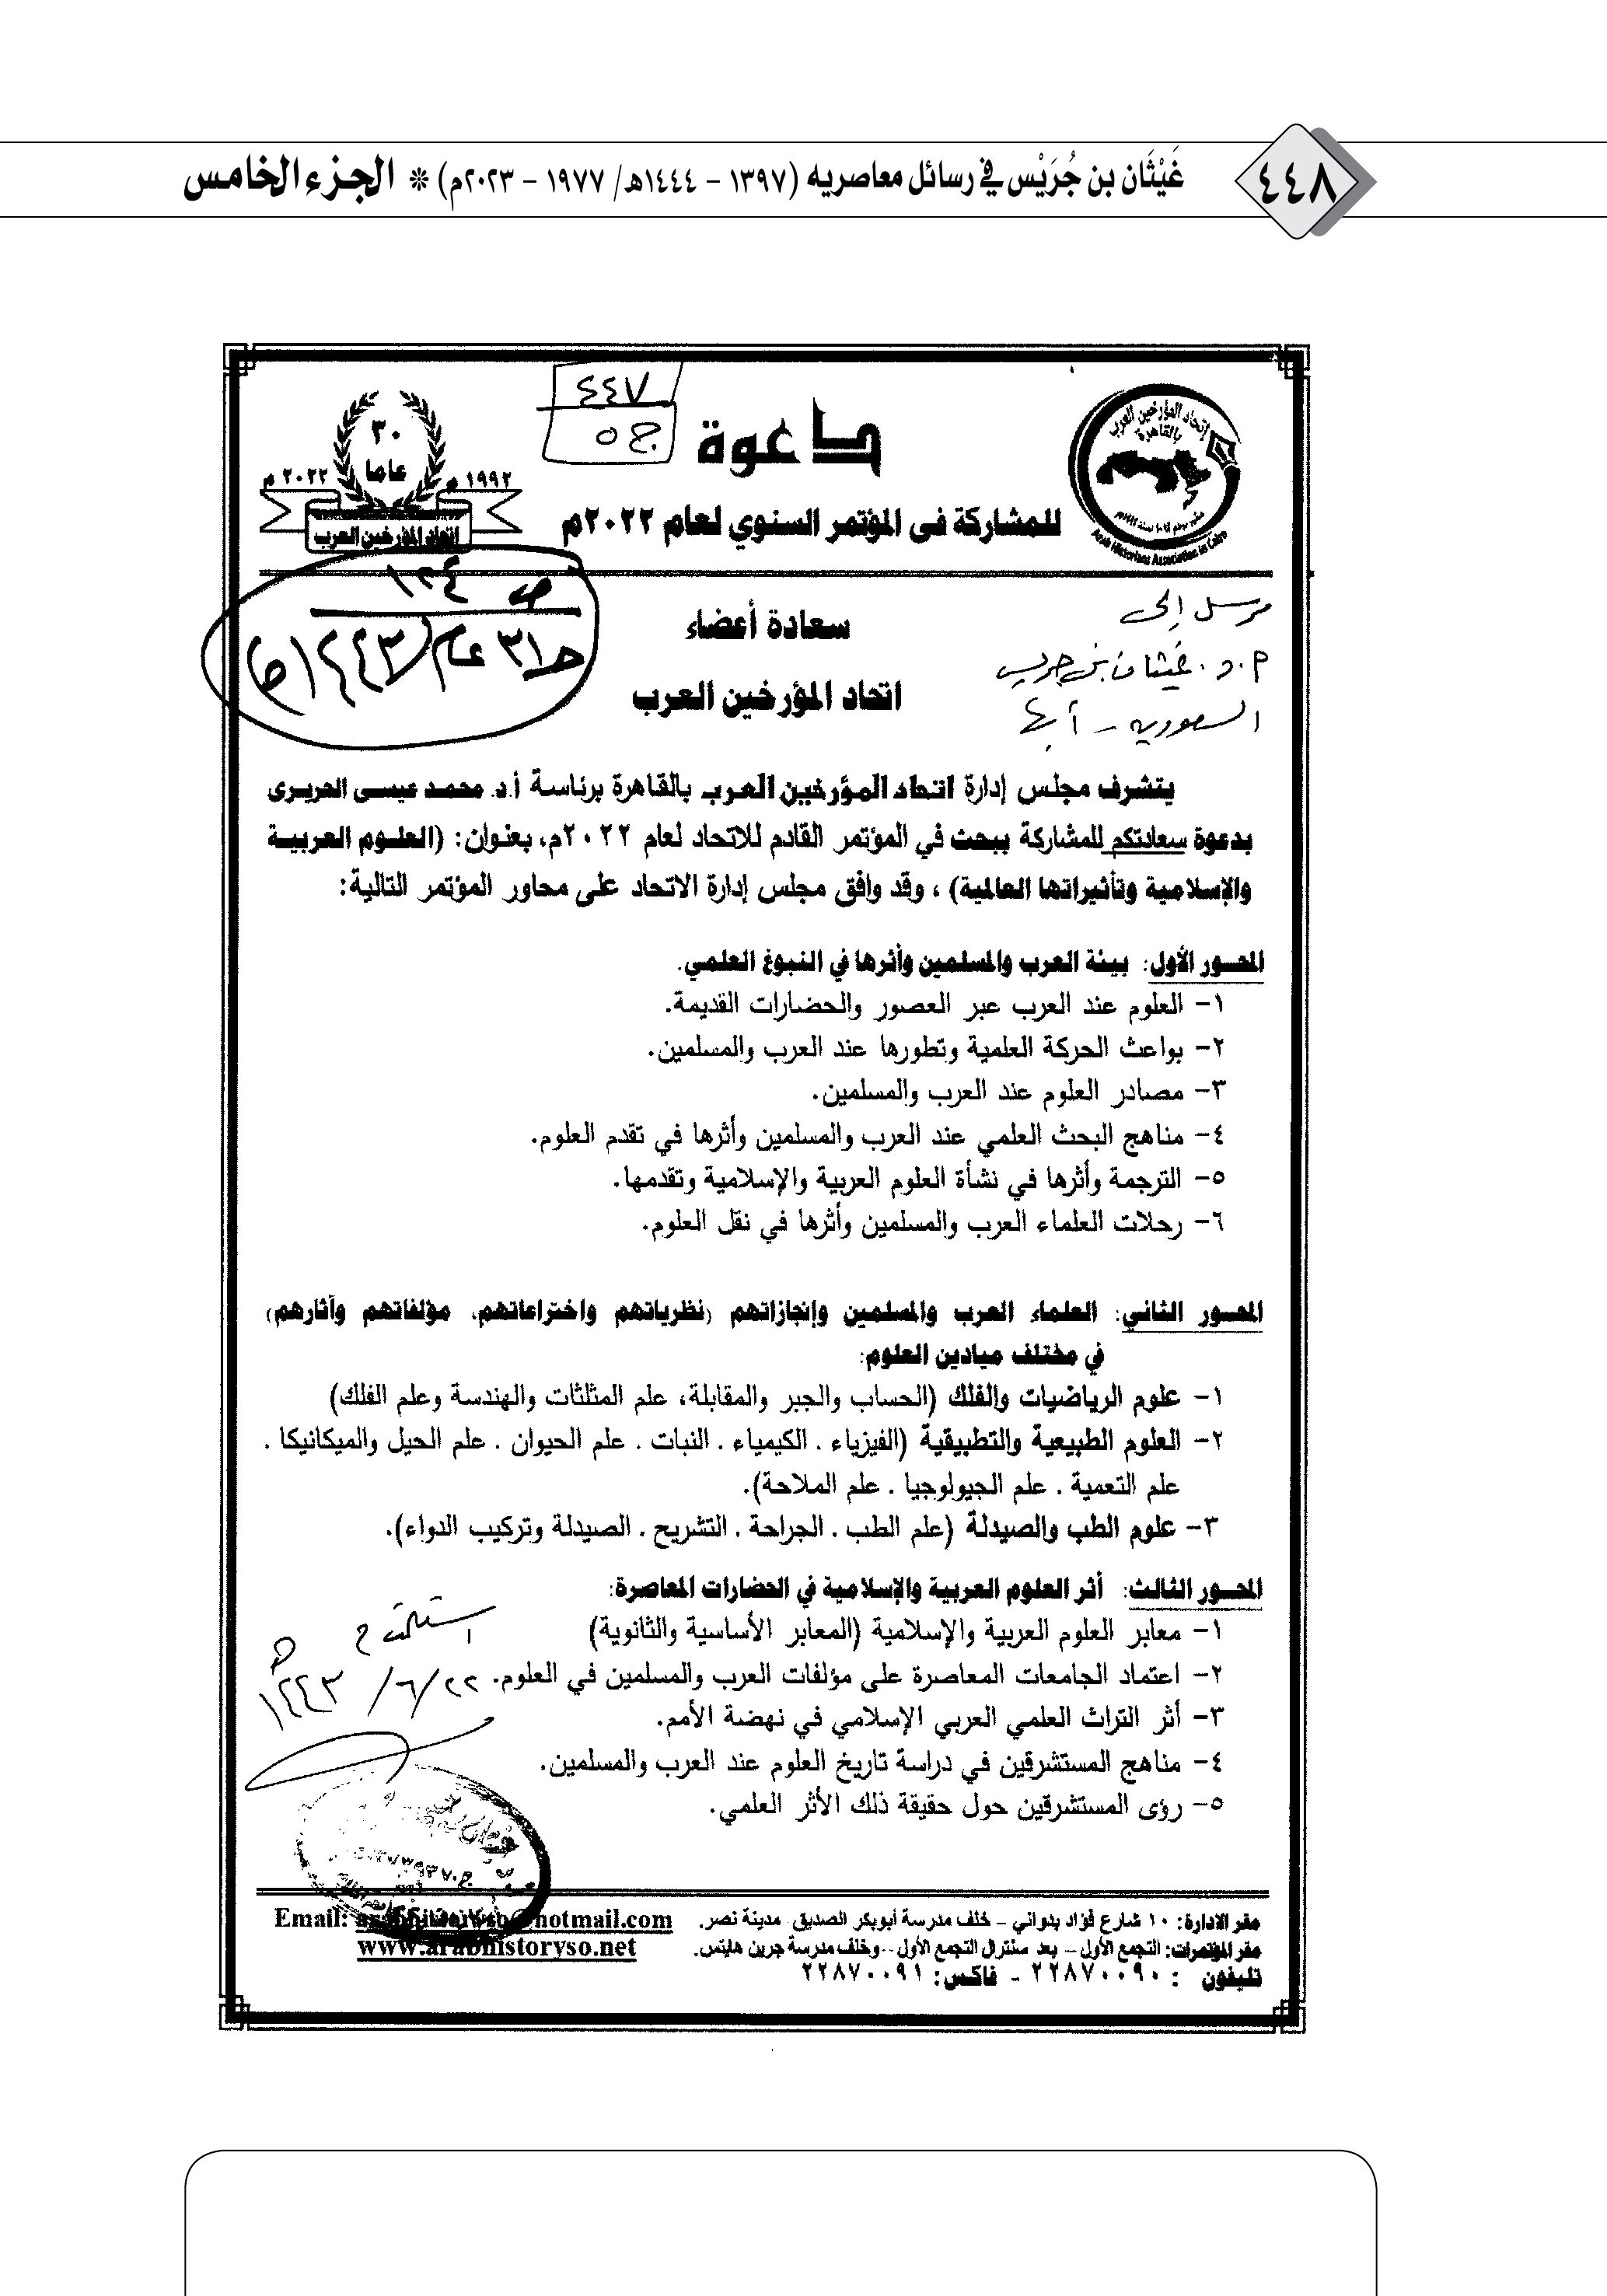 ٤٤٨
غَيْثَان بن جُرَيْس في رسائل معاصريه (١٣٩٧ – ١٤٤٤هـ/ ١٩٧٧ – ٢٠٢٣م) * الجزء الخامس
اتحاد المؤرخين العرب
بالقاهرة
Arab Historians Association In Cairo
دعوة
للمشاركة فى المؤتمر السنوي لعام ٢٠٢٢م
٤٤٧
ج ٥
٣٠
عاما
١٩٩٢ م
٢٠٢٢ م
اتحاد المؤرخين العرب
مرسل إلى
غيثان بن جريس
السعودية – أبها
سعادة أعضاء
اتحاد المؤرخين العرب
ص ١٣٤
ح ٣١ عام ١٤٤٣
يتشرف مجلس إدارة اتحاد المؤرخين العرب بالقاهرة برئاسة أ.د. محمد عيسى الحريرى
بدعوة سعادتكم للمشاركة ببحث في المؤتمر القادم للاتحاد لعام ٢٠٢٢م، بعنوان: (العلوم العربية
والإسلامية وتأثيراتها العالمية) ، وقد وافق مجلس إدارة الاتحاد على محاور المؤتمر التالية:
المحور الأول: بيئة العرب والمسلمين وأثرها في النبوغ العلمي.
١- العلوم عند العرب عبر العصور والحضارات القديمة.
٢- بواعث الحركة العلمية وتطورها عند العرب والمسلمين.
٣- مصادر العلوم عند العرب والمسلمين.
٤- مناهج البحث العلمي عند العرب والمسلمين وأثرها في تقدم العلوم.
٥- الترجمة وأثرها في نشأة العلوم العربية والإسلامية وتقدمها.
٦- رحلات العلماء العرب والمسلمين وأثرها في نقل العلوم.
المحور الثاني: العلماء العرب والمسلمين وإنجازاتهم (نظرياتهم واختراعاتهم، مؤلفاتهم وآثارهم)
في مختلف ميادين العلوم:
١- علوم الرياضيات والفلك (الحساب والجبر والمقابلة، علم المثلثات والهندسة وعلم الفلك)
٢- العلوم الطبيعية والتطبيقية (الفيزياء . الكيمياء . النبات . علم الحيوان . علم الحيل والميكانيكا .
علم التعمية . علم الجيولوجيا . علم الملاحة).
٣- علوم الطب والصيدلة (علم الطب . الجراحة . التشريح . الصيدلة وتركيب الدواء).
المحور الثالث: أثر العلوم العربية والإسلامية في الحضارات المعاصرة:
١- معابر العلوم العربية والإسلامية (المعابر الأساسية والثانوية)
٢- اعتماد الجامعات المعاصرة على مؤلفات العرب والمسلمين في العلوم.
٣- أثر التراث العلمي العربي الإسلامي في نهضة الأمم.
٤- مناهج المستشرقين في دراسة تاريخ العلوم عند العرب والمسلمين.
٥- رؤى المستشرقين حول حقيقة ذلك الأثر العلمي.
٢٢/٦/١٤٤٣
مقر الادارة: ١٠ شارع فؤاد بدواني – خلف مدرسة أبوبكر الصديق- مدينة نصر.
مقر المؤتمرات: التجمع الأول – بعد سنترال التجمع الأول -- وخلف مدرسة جرين هايتس.
تليفون : ٢٢٨٧٠٠٩٠ - فاكس: ٢٢٨٧٠٠٩١
Email: arabhistoryso@hotmail.com
www.arabhistoryso.net